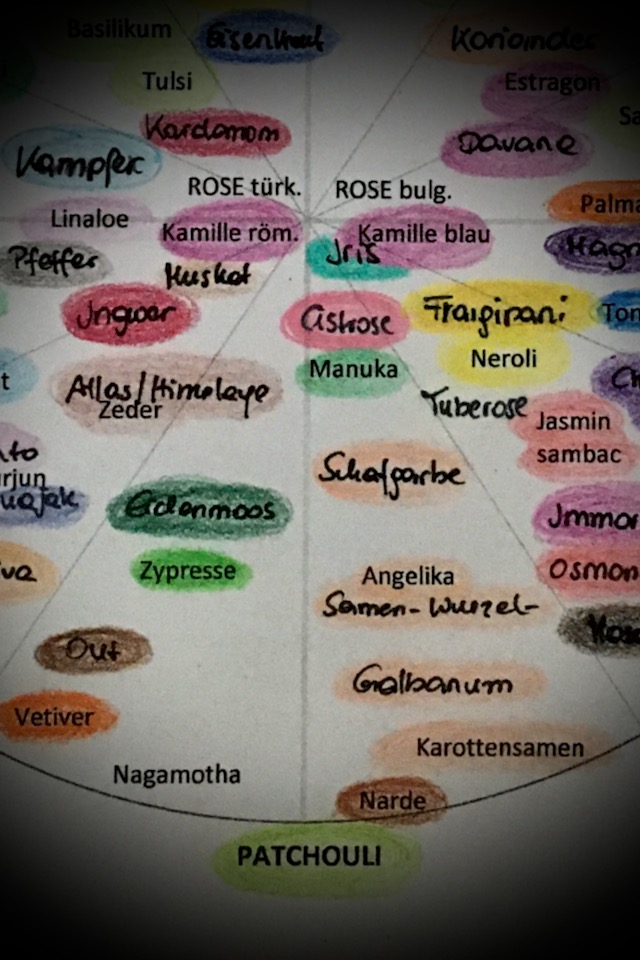 Basilikum
Eisenkraut
Koriander
Tulsi
Estragon
Kardamom
Davana
Kampfer
ROSE türk.
ROSE bulg.
Linaloe
Kamille röm.
Kamille blau
Palma
Iris
Pfeffer
Muskat
Magn
Ingwer
Cistrose
Frangipani
Ton
Manuka
Neroli
Atlas/Himalaya
Zeder
Tuberose
Jasmin
sambac
Schafgarbe
Eichenmoos
Immor
Zypresse
Angelika
Samen-Wurzel-
Osman
Out
Galbanum
Vetiver
Karottensamen
Nagamotha
Narde
PATCHOULI